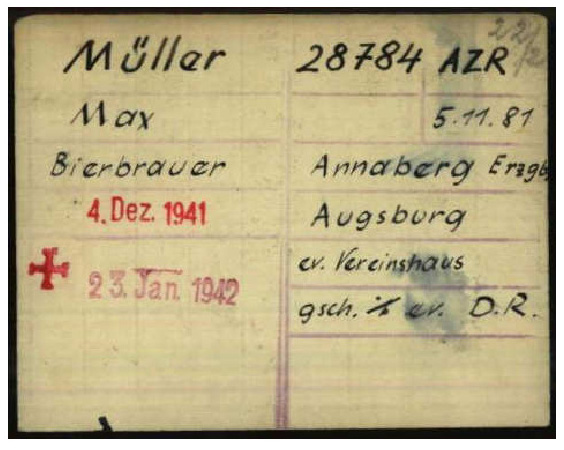 22/2
Müller 28784 AZR
Max 5.11.81
Bierbrauer Annaberg Erzgb
4. Dez. 1941 Augsburg
ev. Vereinshaus
23. Jan. 1942
gsch. ev. D.R.